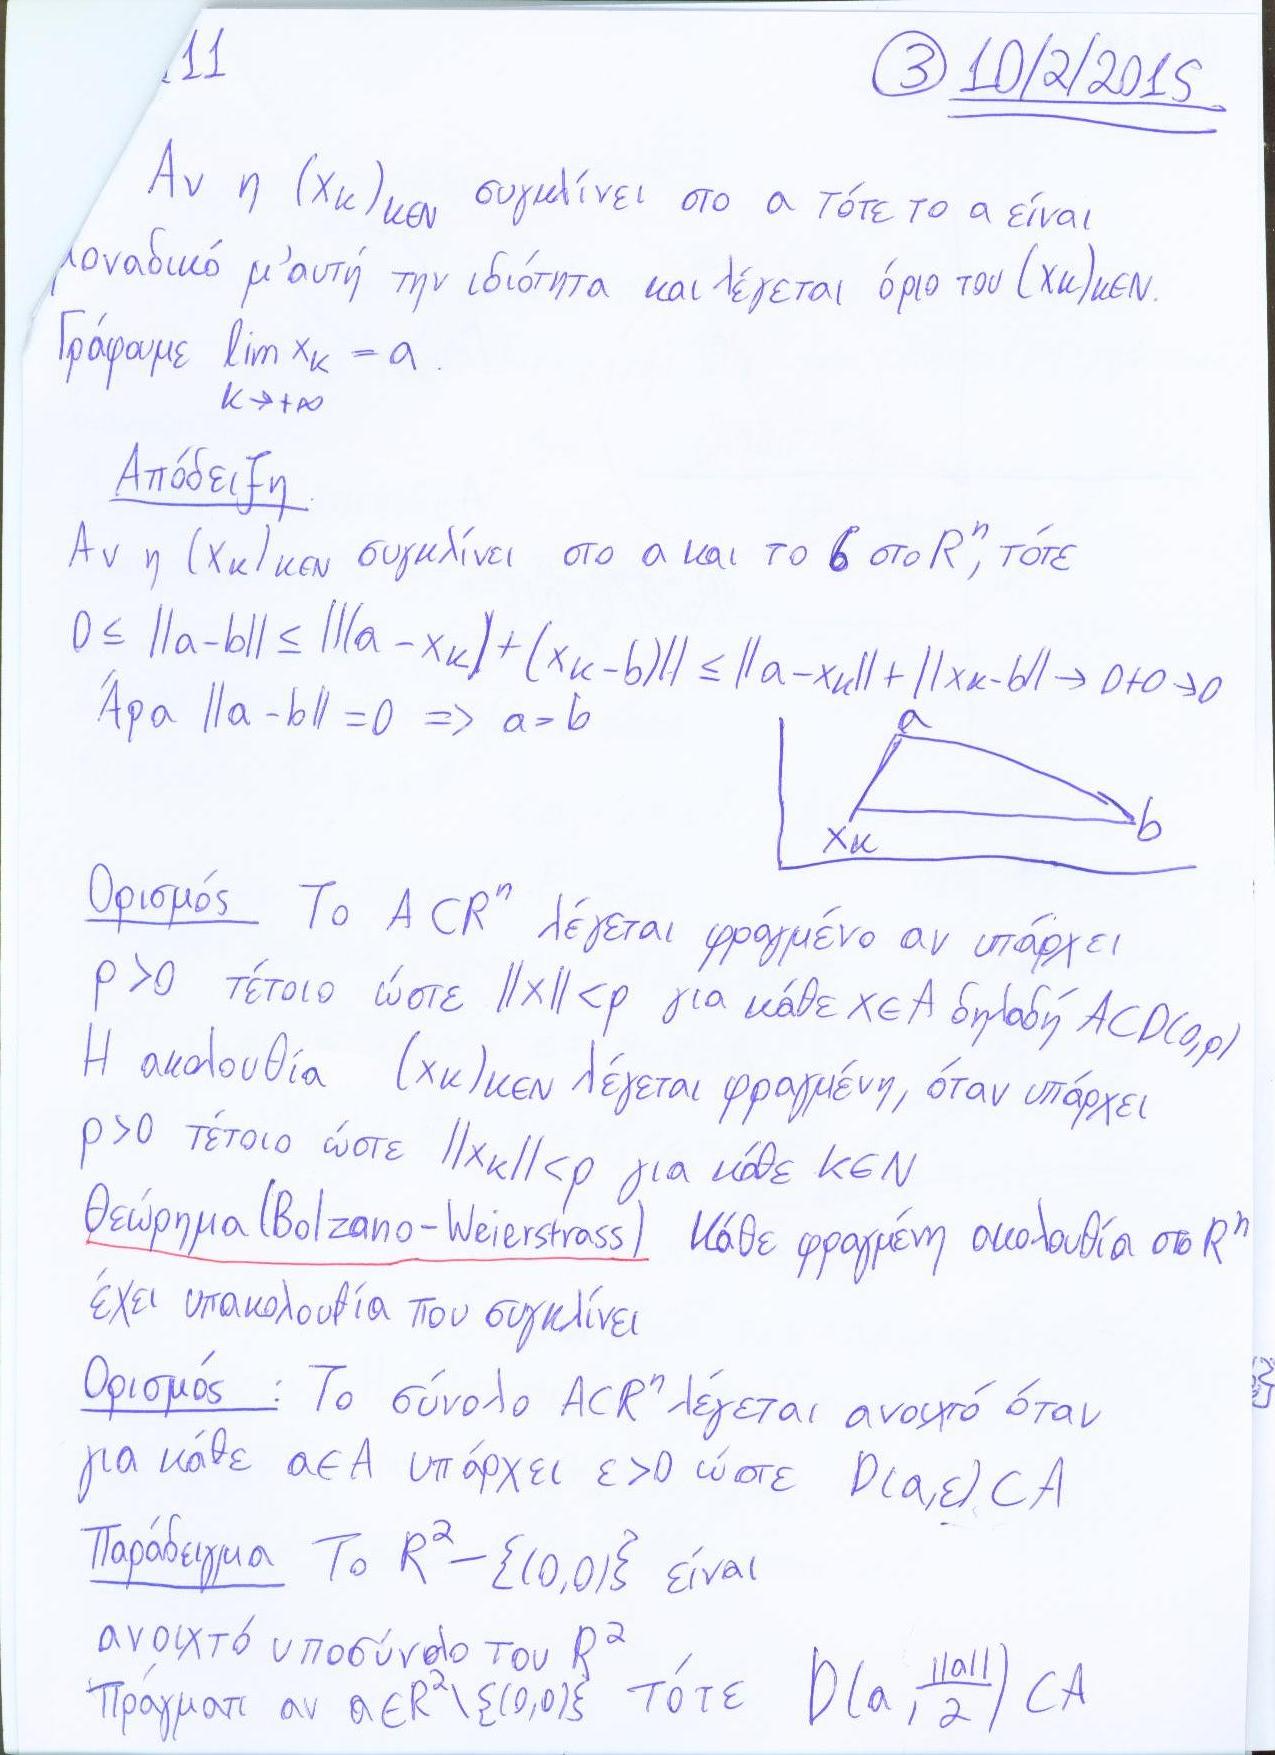 11 ③ 10/2/2015
Αν η (xκ)κ∈N συγκλίνει στο a τότε το a είναι
μοναδικό μ'αυτή την ιδιότητα και λέγεται όριο του (xκ)κ∈N.
Γράφουμε lim xκ = a.
κ→+∞
Απόδειξη
Αν η (xκ)κ∈N συγκλίνει στο a και το b στο Rⁿ, τότε
0 ≤ ||a-b|| ≤ ||(a-xκ)+(xκ-b)|| ≤ ||a-xκ||+||xκ-b|| → 0+0 → 0
Άρα ||a-b|| = 0 => a=b
a
xκ b
Ορισμός Το A⊂Rⁿ λέγεται φραγμένο αν υπάρχει
ρ>0 τέτοιο ώστε ||x||<ρ για κάθε x∈A δηλαδή A⊂D(0,ρ)
Η ακολουθία (xκ)κ∈N λέγεται φραγμένη, όταν υπάρχει
ρ>0 τέτοιο ώστε ||xκ||<ρ για κάθε κ∈N
Θεώρημα (Bolzano-Weierstrass) Κάθε φραγμένη ακολουθία στο Rⁿ
έχει υπακολουθία που συγκλίνει
Ορισμός : Το σύνολο A⊂Rⁿ λέγεται ανοιχτό όταν
για κάθε a∈A υπάρχει ε>0 ώστε D(a,ε)⊂A
Παράδειγμα Το R²-{(0,0)} είναι
ανοιχτό υποσύνολο του R²
Πράγματι αν a∈R²\{(0,0)} τότε D(a, ||a||/2)⊂A